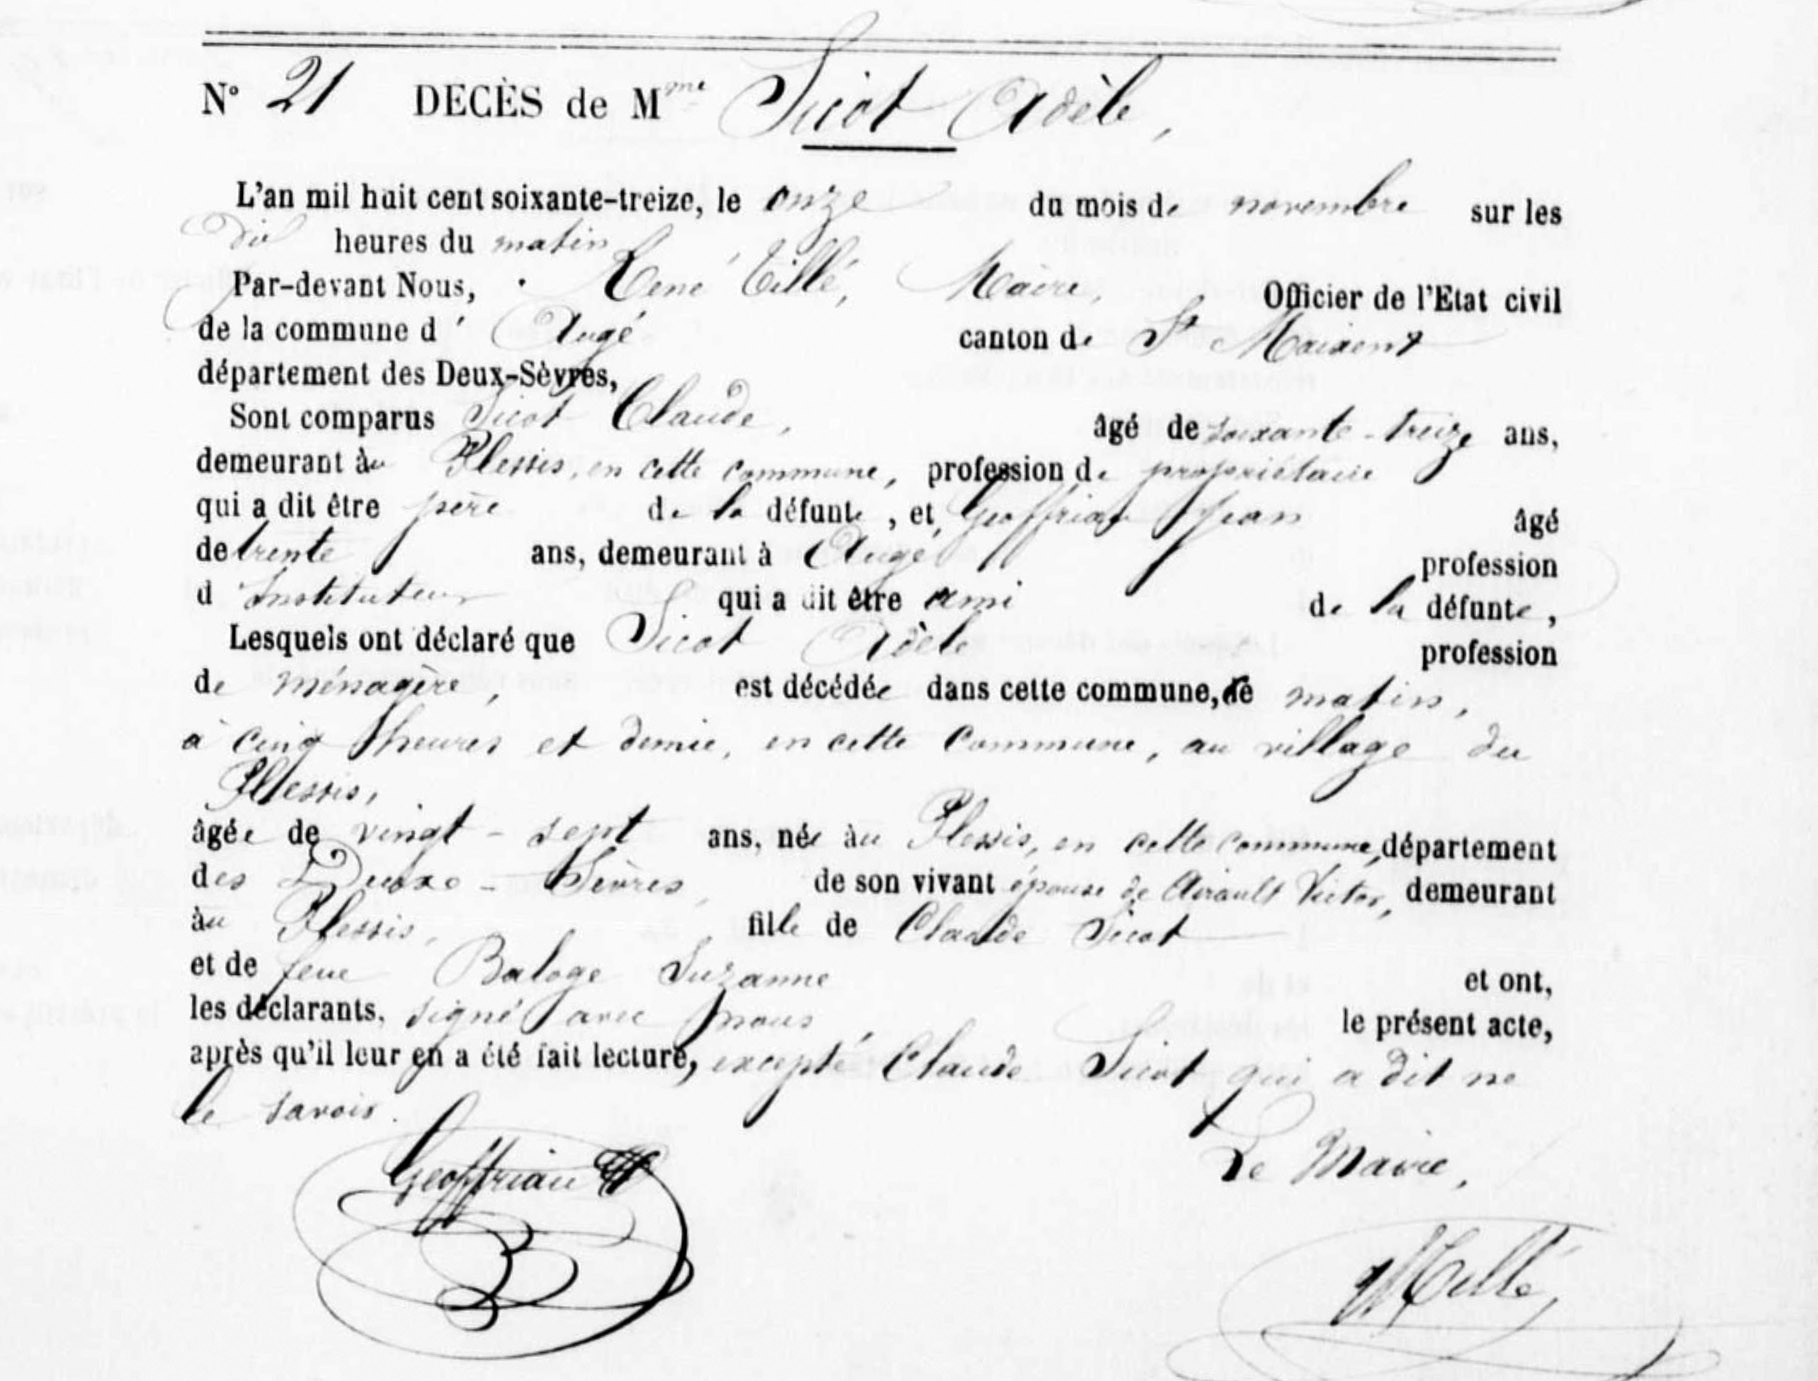 N° 21 DECÈS de Mme Sicot Adèle,
L'an mil huit cent soixante-treize, le onze du mois de novembre sur les
dix heures du matin
Par-devant Nous, René Tillé, Maire, Officier de l'Etat civil
de la commune d' Augé canton de St Maixent
département des Deux-Sèvres,
Sont comparus Sicot Claude, âgé de soixante-treize ans,
demeurant àu Plessis, en cette commune, profession de propriétaire
qui a dit être père de la défunte, et Geoffriau Jean âgé
de trente ans, demeurant à Augé profession
d'instituteur qui a dit être ami de la défunte,
Lesquels ont déclaré que Sicot Adèle profession
de ménagère, est décédée dans cette commune, ce matin,
à cinq heures et demie, en cette commune, au village du
Plessis,
âgée de vingt-sept ans, née àu Plessis, en cette commune, département
des Deux-Sèvres, de son vivant épouse de Airault Victor, demeurant
àu Plessis, fille de Claude Sicot
et de feue Baloge Suzanne et ont,
les déclarants, signé avec nous, le présent acte,
après qu'il leur en a été fait lecture, excepté Claude Sicot qui a dit ne
le savoir.
Geoffriau Le Maire,
Tillé